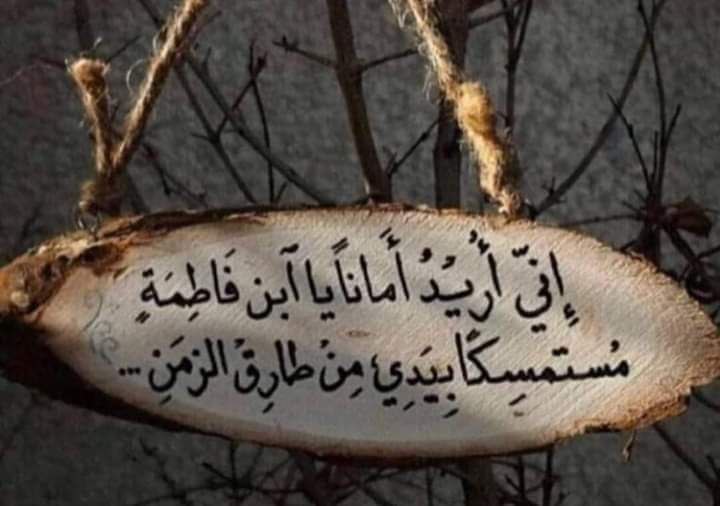 إِنِّي أُرِيْدُ أَمَانًا يا آبن فَاطِمَةٍ
مُستَمسِكًا بِيَدِي مِنْ طارِقْ الزمَنِ ...